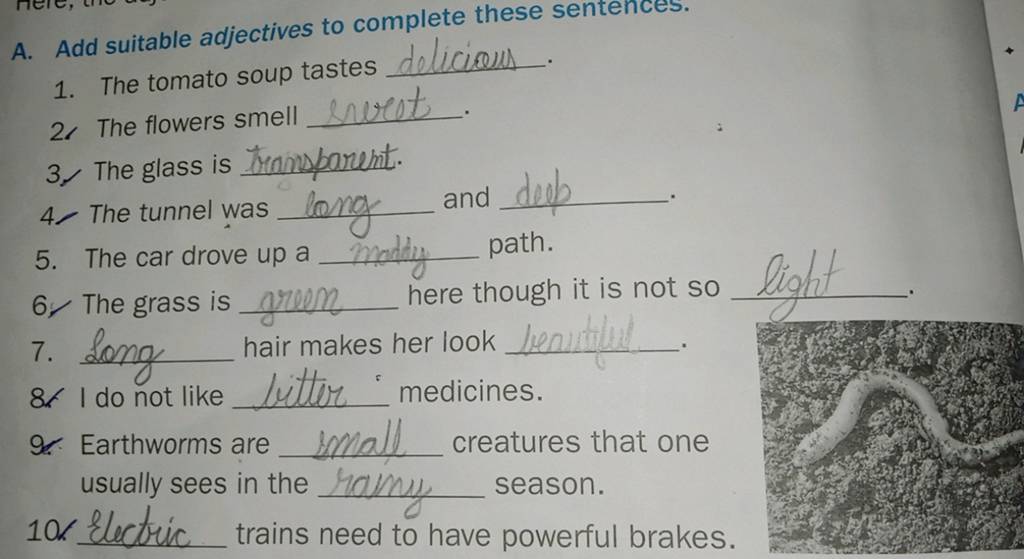 Here, the
A. Add suitable adjectives to complete these sentences.
1. The tomato soup tastes delicious.
2. The flowers smell sweet.
3. The glass is transparent.
4. The tunnel was long and deep.
5. The car drove up a maddy path.
6. The grass is green here though it is not so light.
7. Long hair makes her look beautiful.
8. I do not like bitter medicines.
9. Earthworms are small creatures that one
usually sees in the ramy season.
10. Electric trains need to have powerful brakes.